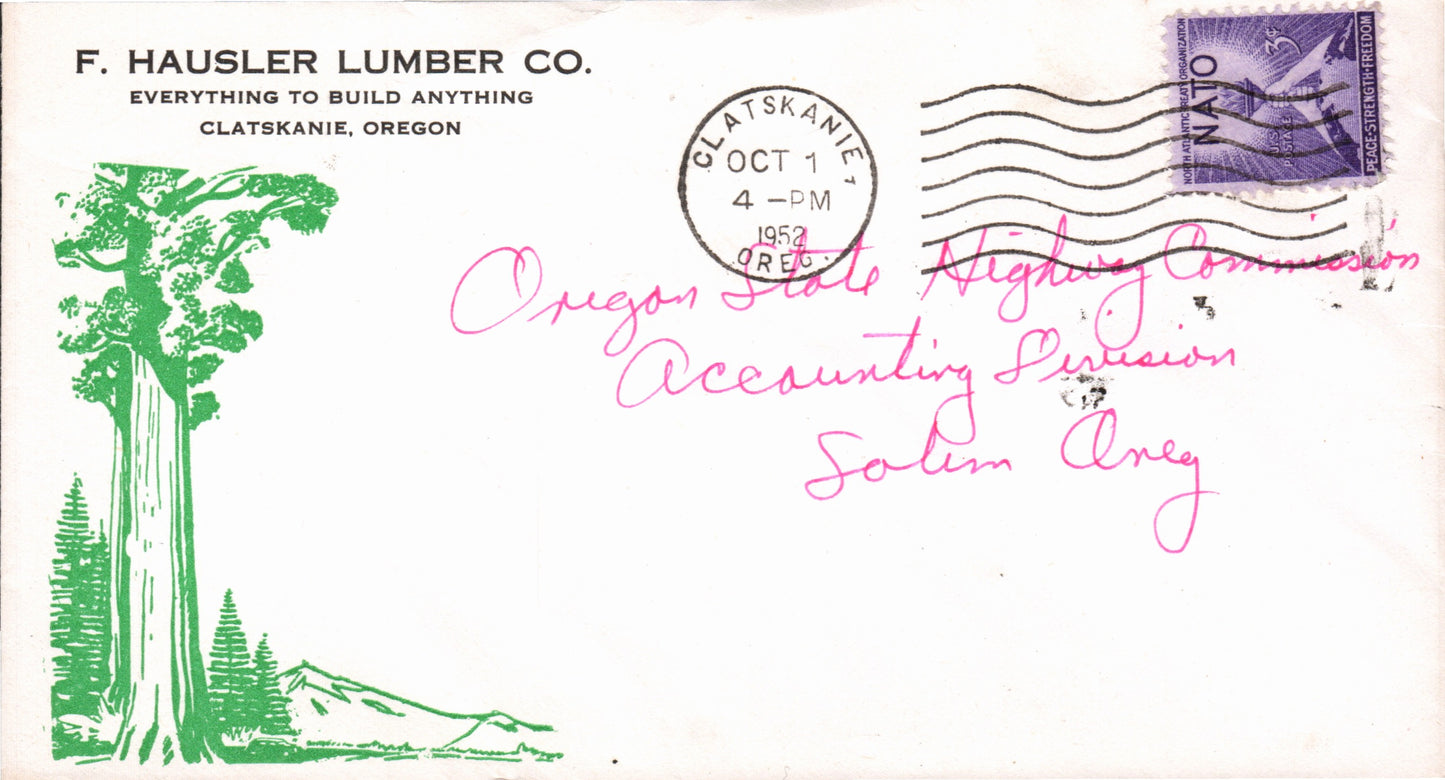 F. HAUSLER LUMBER CO.
EVERYTHING TO BUILD ANYTHING
CLATSKANIE, OREGON
CLATSKANIE,
OCT 1
4 -PM
1952
OREG.
NORTH ATLANTIC TREATY ORGANIZATION
NATO
3¢
U.S. POSTAGE
PEACE·STRENGTH·FREEDOM
Oregon State Highway Commission
Accounting Division
Salem Oreg